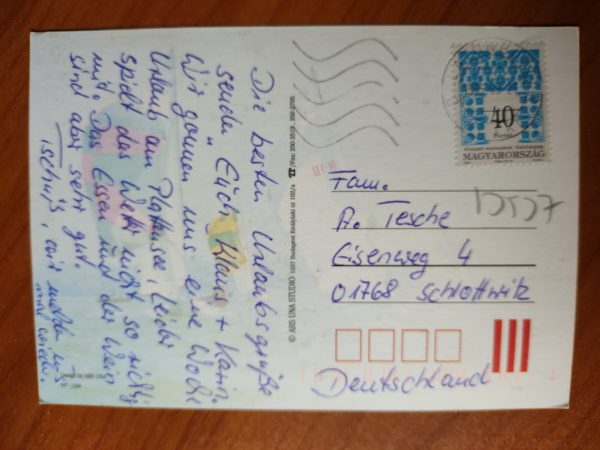 Die besten Urlaubsgrüße
senden Euch Klaus + Karin.
Wir gönnen uns eine Woche
Urlaub am Plattensee, leider
spielt das Wetter nicht so richtig
mit. Das Essen und der Wein
sind aber sehr gut.
Tschüß, wir
© ARS UNA STUDIO 1037 Budapest Királylaki út 102/a ☎/Fax: 250-2519
40
MAGYARORSZÁG
Fam.
A. Tesche
Eisenweg 4
01768 Schlottwitz
Deutschland